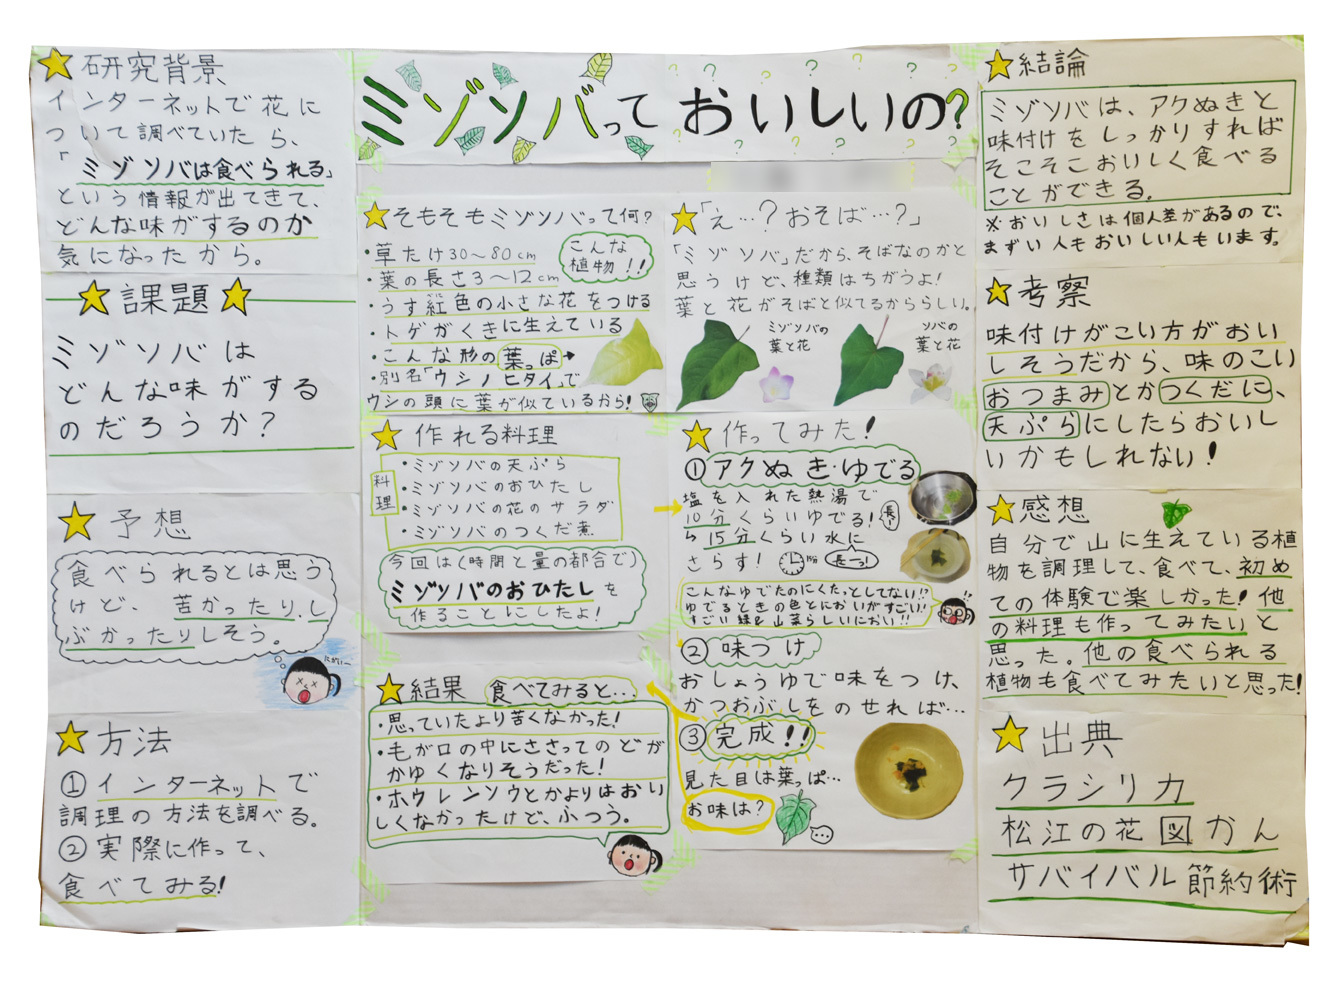 ミゾソバっておいしいの?
研究背景
インターネットで花に
ついて調べていたら、
「ミゾソバは食べられる」
という情報が出てきて、
どんな味がするのか
気になったから。
課題
ミゾソバは
どんな味がする
のだろうか?
予想
食べられるとは思う
けど、苦かったり、し
ぶかったりしそう。
にがい〜
方法
①インターネットで
調理の方法を調べる。
②実際に作って、
食べてみる!
そもそもミゾソバって何?
・草たけ30〜80cm
・葉の長さ3〜12cm
こんな
植物!!
・うす紅色の小さな花をつける
・トゲがくきに生えている
・こんな形の葉っぱ→
・別名「ウシノヒタイ」で
ウシの頭に葉が似ているから!
「え…?おそば…?」
「ミゾソバ」だから、そばなのかと
思うけど、種類はちがうよ!
葉と花がそばと似てるかららしい。
ミゾソバの
葉と花
ソバの
葉と花
作れる料理
料理
・ミゾソバの天ぷら
・ミゾソバのおひたし
・ミゾソバの花のサラダ
・ミゾソバのつくだ煮
今回は(時間と量の都合で)
ミゾソバのおひたしを
作ることにしたよ!
作ってみた!
①アクぬき・ゆでる
塩を入れた熱湯で
10分くらいゆでる!
長!
15分くらい水に
さらす!
長〜っ!
こんなゆでたのにくたっとしてない!!
ゆでるときの色とにおいがすごい!
すごい緑&山菜らしいにおい!!
②味つけ
おしょうゆで味をつけ、
かつおぶしをのせれば…
③完成!!
見た目は葉っぱ…
お味は?
結果
食べてみると…
・思っていたより苦くなかった!
・毛が口の中にささってのどが
かゆくなりそうだった!
・ホウレンソウとかよりはおい
しくなかったけど、ふつう。
結論
ミゾソバは、アクぬきと
味付けをしっかりすれば
そこそこおいしく食べる
ことができる。
※おいしさは個人差があるので、
まずい人もおいしい人もいます。
考察
味付けがこい方がおい
しそうだから、味のこい
おつまみとかつくだに、
天ぷらにしたらおいし
いかもしれない!
感想
自分で山に生えている植
物を調理して、食べて、初め
ての体験で楽しかった!他
の料理も作ってみたいと
思った。他の食べられる
植物も食べてみたいと思った!
出典
クラシリカ
松江の花図かん
サバイバル節約術